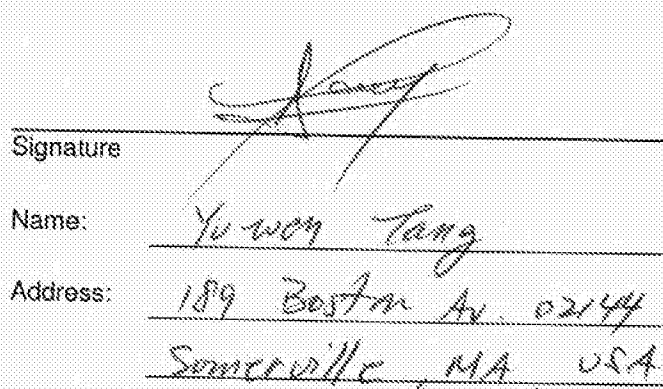 Signature
Name: Yu-wen Tang
Address: 189 Boston Av. 02144
Somerville, MA USA